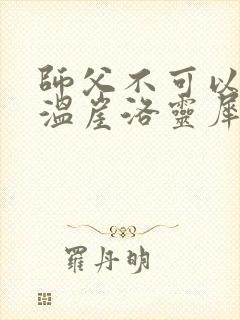 師父不可以
溫崖洛靈犀
羅丹明